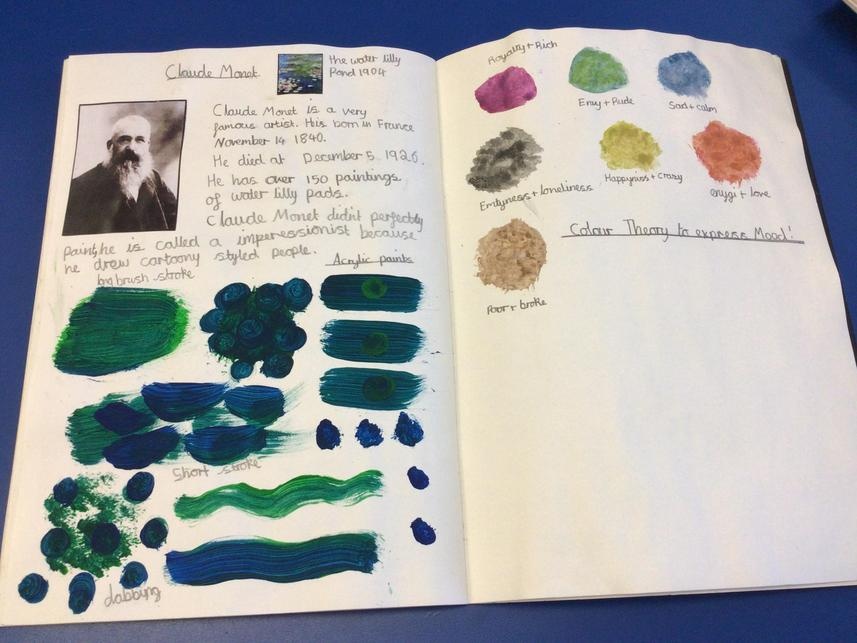 Claude Monet
the water lilly
Pond 1904
Claude Monet is a very
famous artist. His born in France
November 14 1840.
He died at December 5 1926.
He has over 150 paintings
of water lilly pads.
Claude Monet didn't perfectly
paint, he is called a imperessionist because
he drew cartoony styled people.
big brush stroke
Acrylic paints
Short stroke
dabbing
Royalty + Rich
Envy + Rude
Sad + calm
Emtyness + loneliness
Happyniss + crazy
enygi + love
Poor + broke
Colour Theory to express Mood!